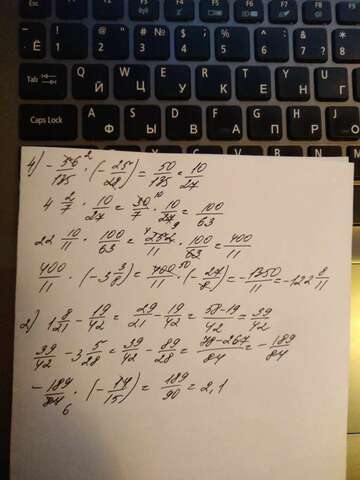 Esc F1 F2 F3 F4 F5 F6 F7 F8
~ Ё ! 1 @ " 2 # № 3 $ ; 4 % 5 ^ : 6 & ? 7 * 8
Tab Й Ц У К Е Н Г
Caps Lock Ф Ы В А П Р О
1) -56²/135 · (-25/28) = 50/135 = 10/27
4 2/7 · 10/27 = 30/7 ¹⁰ · 10/27 ₉ = 100/63
22 10/11 · 100/63 = ⁴252/11 · 100/63 = 400/11
400/11 · (-3 3/8) = 400 ⁵⁰/11 · (-27/8) = -1350/11 = -122 8/11
2) 1 8/21 - 19/42 = 29/21 - 19/42 = 58-19/42 = 39/42
39/42 - 3 5/28 = 39/42 - 89/28 = 78-267/84 = -189/84
-189/84 ₆ · (-14/15) = 189/90 = 2,1